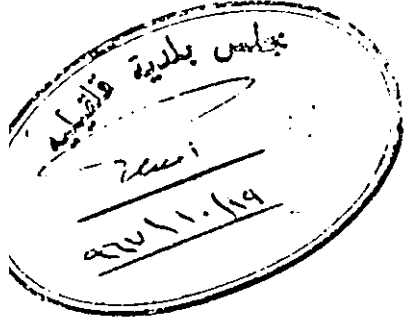 مجلس بلدية قلقيلية
٩٦٧/١٠/١٩